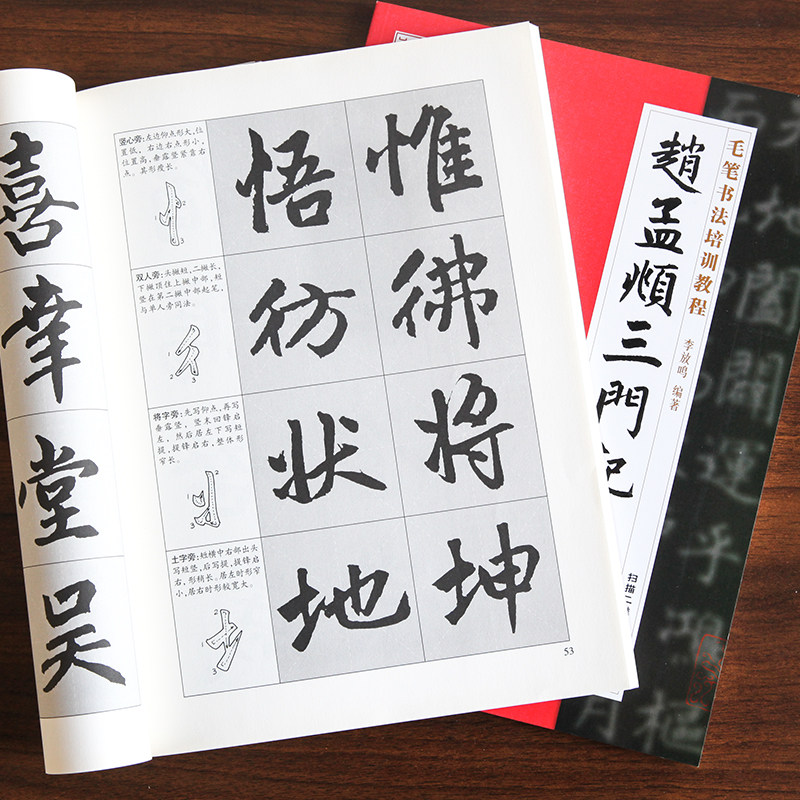 喜
幸
堂
吴
竖心旁:左边仰点形大,位
置低,右边右点形小,
位置高,垂露竖紧靠右
点。其形瘦长。
1
2
3
悟 惟
双人旁:头撇短,二撇长,
下撇顶住上撇中部,短
竖在第二撇中部起笔,
与单人旁同法。
1
2
3
彷 彿
将字旁:先写仰点,再写
垂露竖,竖末回锋启
左,然后居左下写短
提,提锋启右,整体形
窄长。
1
2
3
状 将
土字旁:短横中右部出头
写短竖,后写提,提锋启
右,形稍长。居左时形窄
小,居右时形较宽大。
1
2
3
地 坤
53
毛笔书法培训教程
趙孟頫三門记
李放鸣 编著
扫描二
地闔闢運乎鴻樞
月